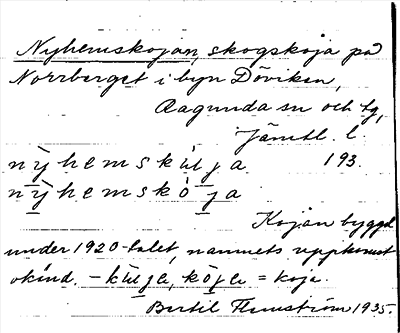 Nyhemskojan, skogskoja på
Norrberget i byn Döviken,
Ragunda sn och tg,
Jämtl. l.
nỳhemskɯ̀tja 193.
nỳhemskö̀ja
Kojan byggd
under 1920-talet, namnets uppkomst
okänd. – = koja.
Bertil Flemström 1935.